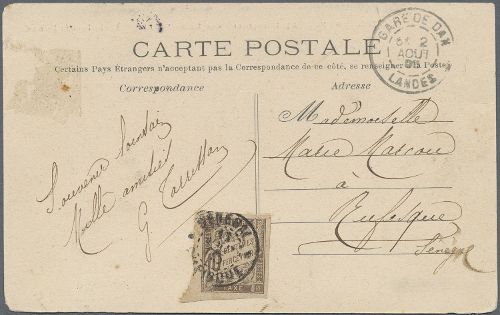 CARTE POSTALE
Certains Pays Étrangers n'acceptant pas la Correspondance de ce côté, se renseigner à la Poste
Correspondance
Adresse
GARE DE DAX
2
AOUT
LANDES
Souvenir
Mille amitiés
G
Mademoiselle
Marie Marcou
à
Rufisque
Sénégal
10
A PERCEVOIR
TAXE